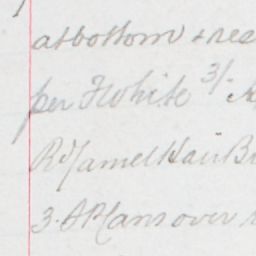 at bottom + rea
per F White 3/-
R. Camel Hair Br
3. A P Cans over